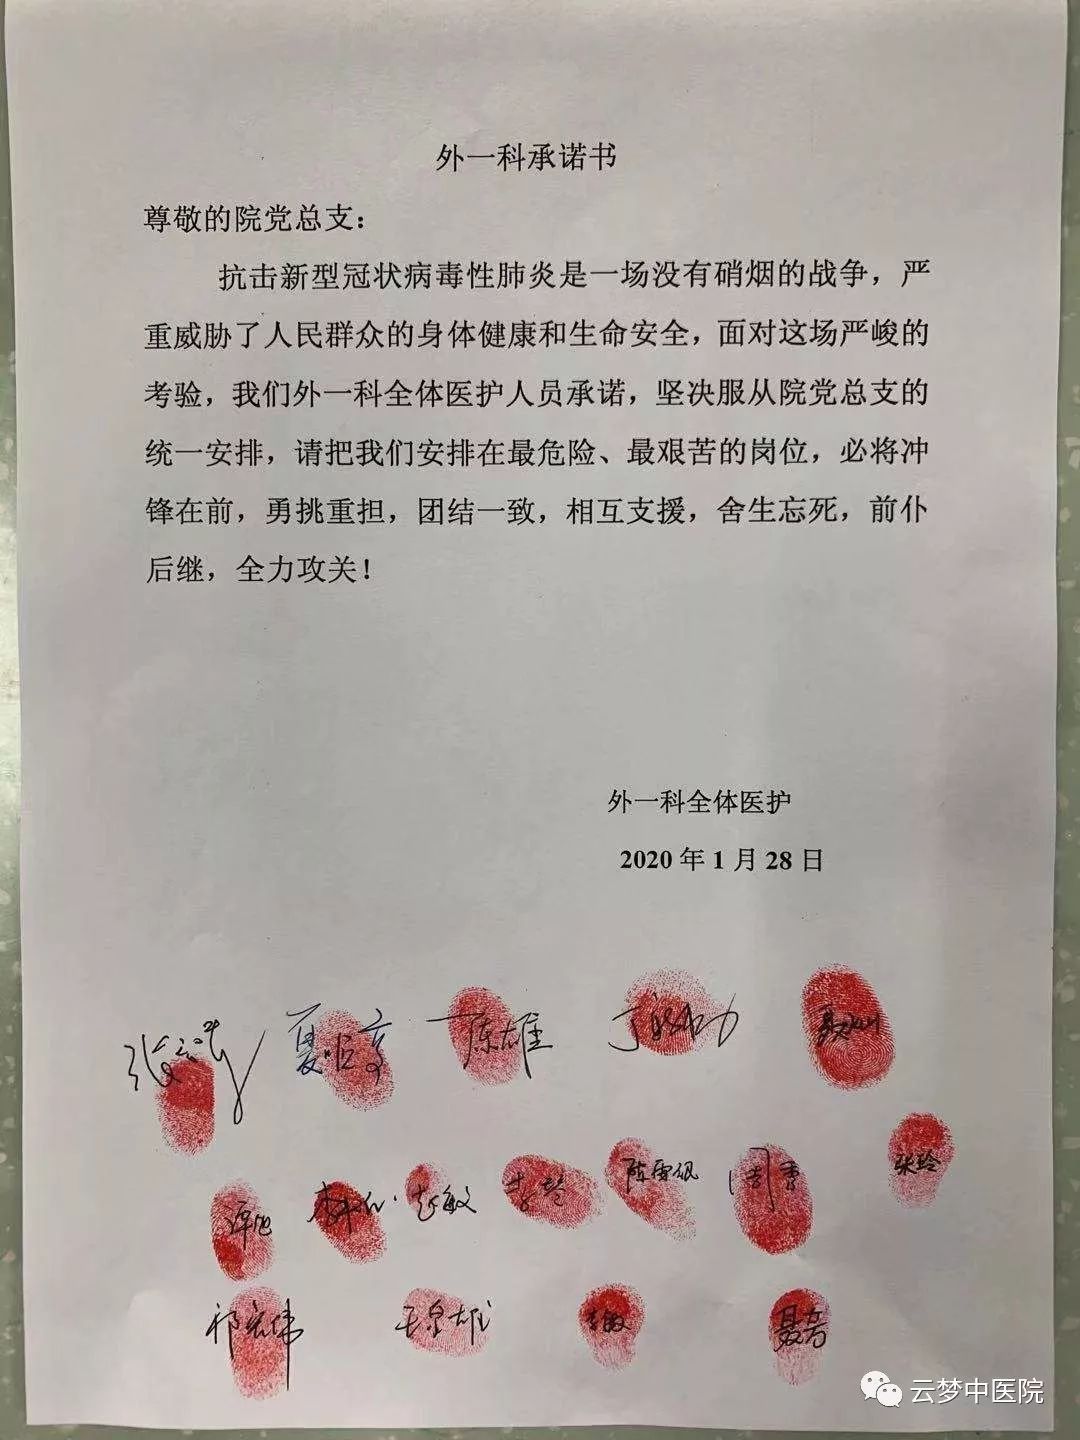 外一科承诺书
尊敬的院党总支：
抗击新型冠状病毒性肺炎是一场没有硝烟的战争，严
重威胁了人民群众的身体健康和生命安全，面对这场严峻的
考验，我们外一科全体医护人员承诺，坚决服从院党总支的
统一安排，请把我们安排在最危险、最艰苦的岗位，必将冲
锋在前，勇挑重担，团结一致，相互支援，舍生忘死，前仆
后继，全力攻关！
外一科全体医护
2020 年 1 月 28 日
陈雄
谭旭 赵敏 李玲 周季 张玲
祁宏伟 王泉雄 李敏 聂芳
云梦中医院